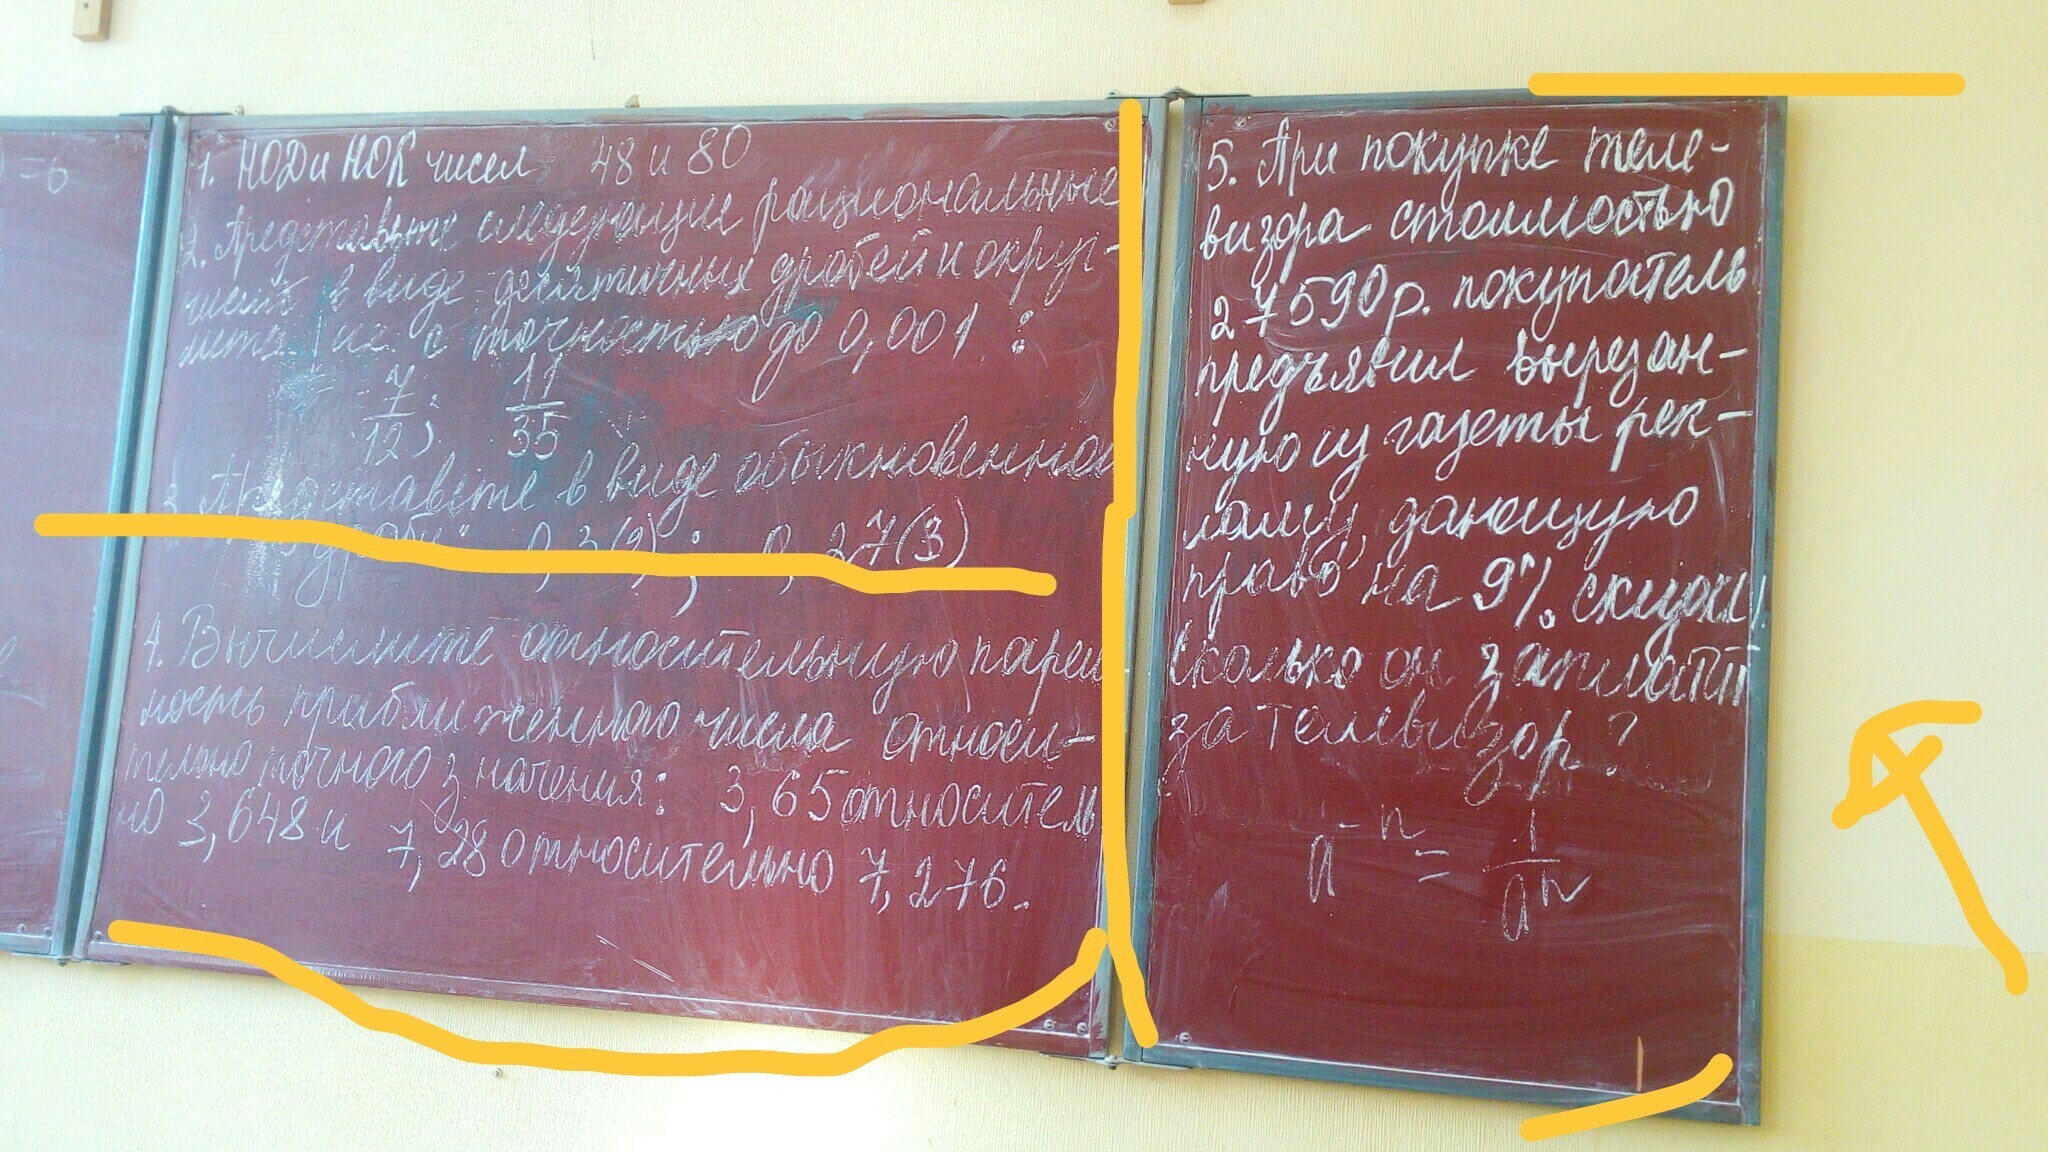 = 6
1. НОД и НОК чисел 48 и 80
2. Представьте следующие рациональные
числа в виде десятичных дробей и округ-
лите их с точностью до 0,001 :
7/12; 11/35
3. Представьте в виде обыкновенной
дроби: 0,3(2); 0,27(3)
4. Вычислите относительную
мость приближенного числа относи-
тельно точного значения: 3,65 относитель
но 3,648 и 7,28 относительно 7,276.
5. При покупке теле-
визора стоимостью
27590 р. покупатель
предъявил вырезан-
ную из газеты рек-
ламу, дающую
право на 9% скидки!
Сколько он заплатит
за телевизор?
a⁻ⁿ = 1/aⁿ